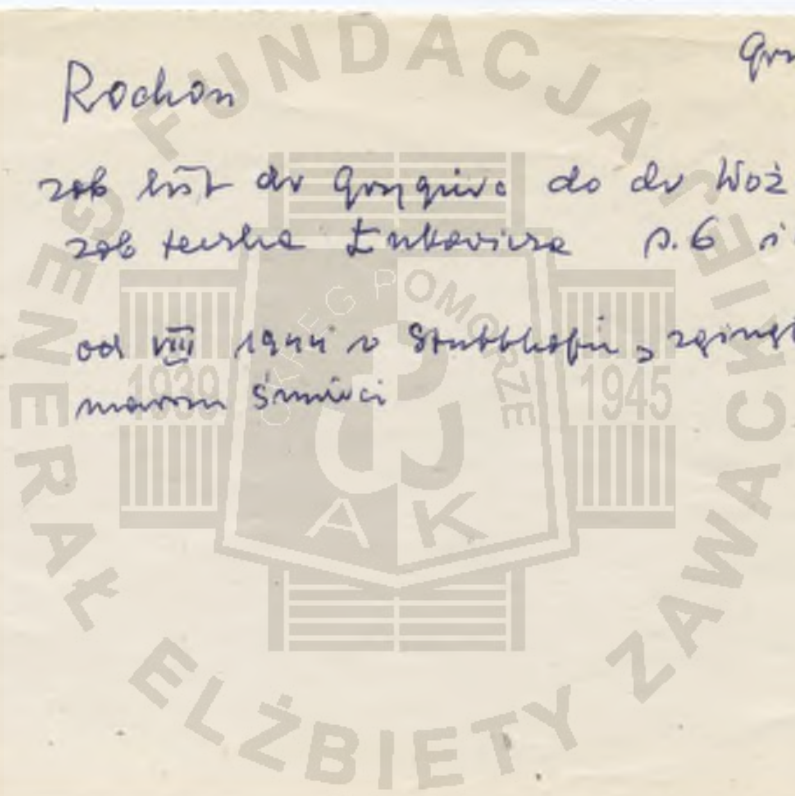 Rochon
zob list dr Grzyguła do dr Woź
zob teczka Łukowicza p. 6 i
od VIII 1944 w Stutthofie, zginął
marszu śmierci
FUNDACJA
GENERAŁ ELŻBIETY ZAWACKIEJ
OKRĘG POMORZE
1939 1945
AK